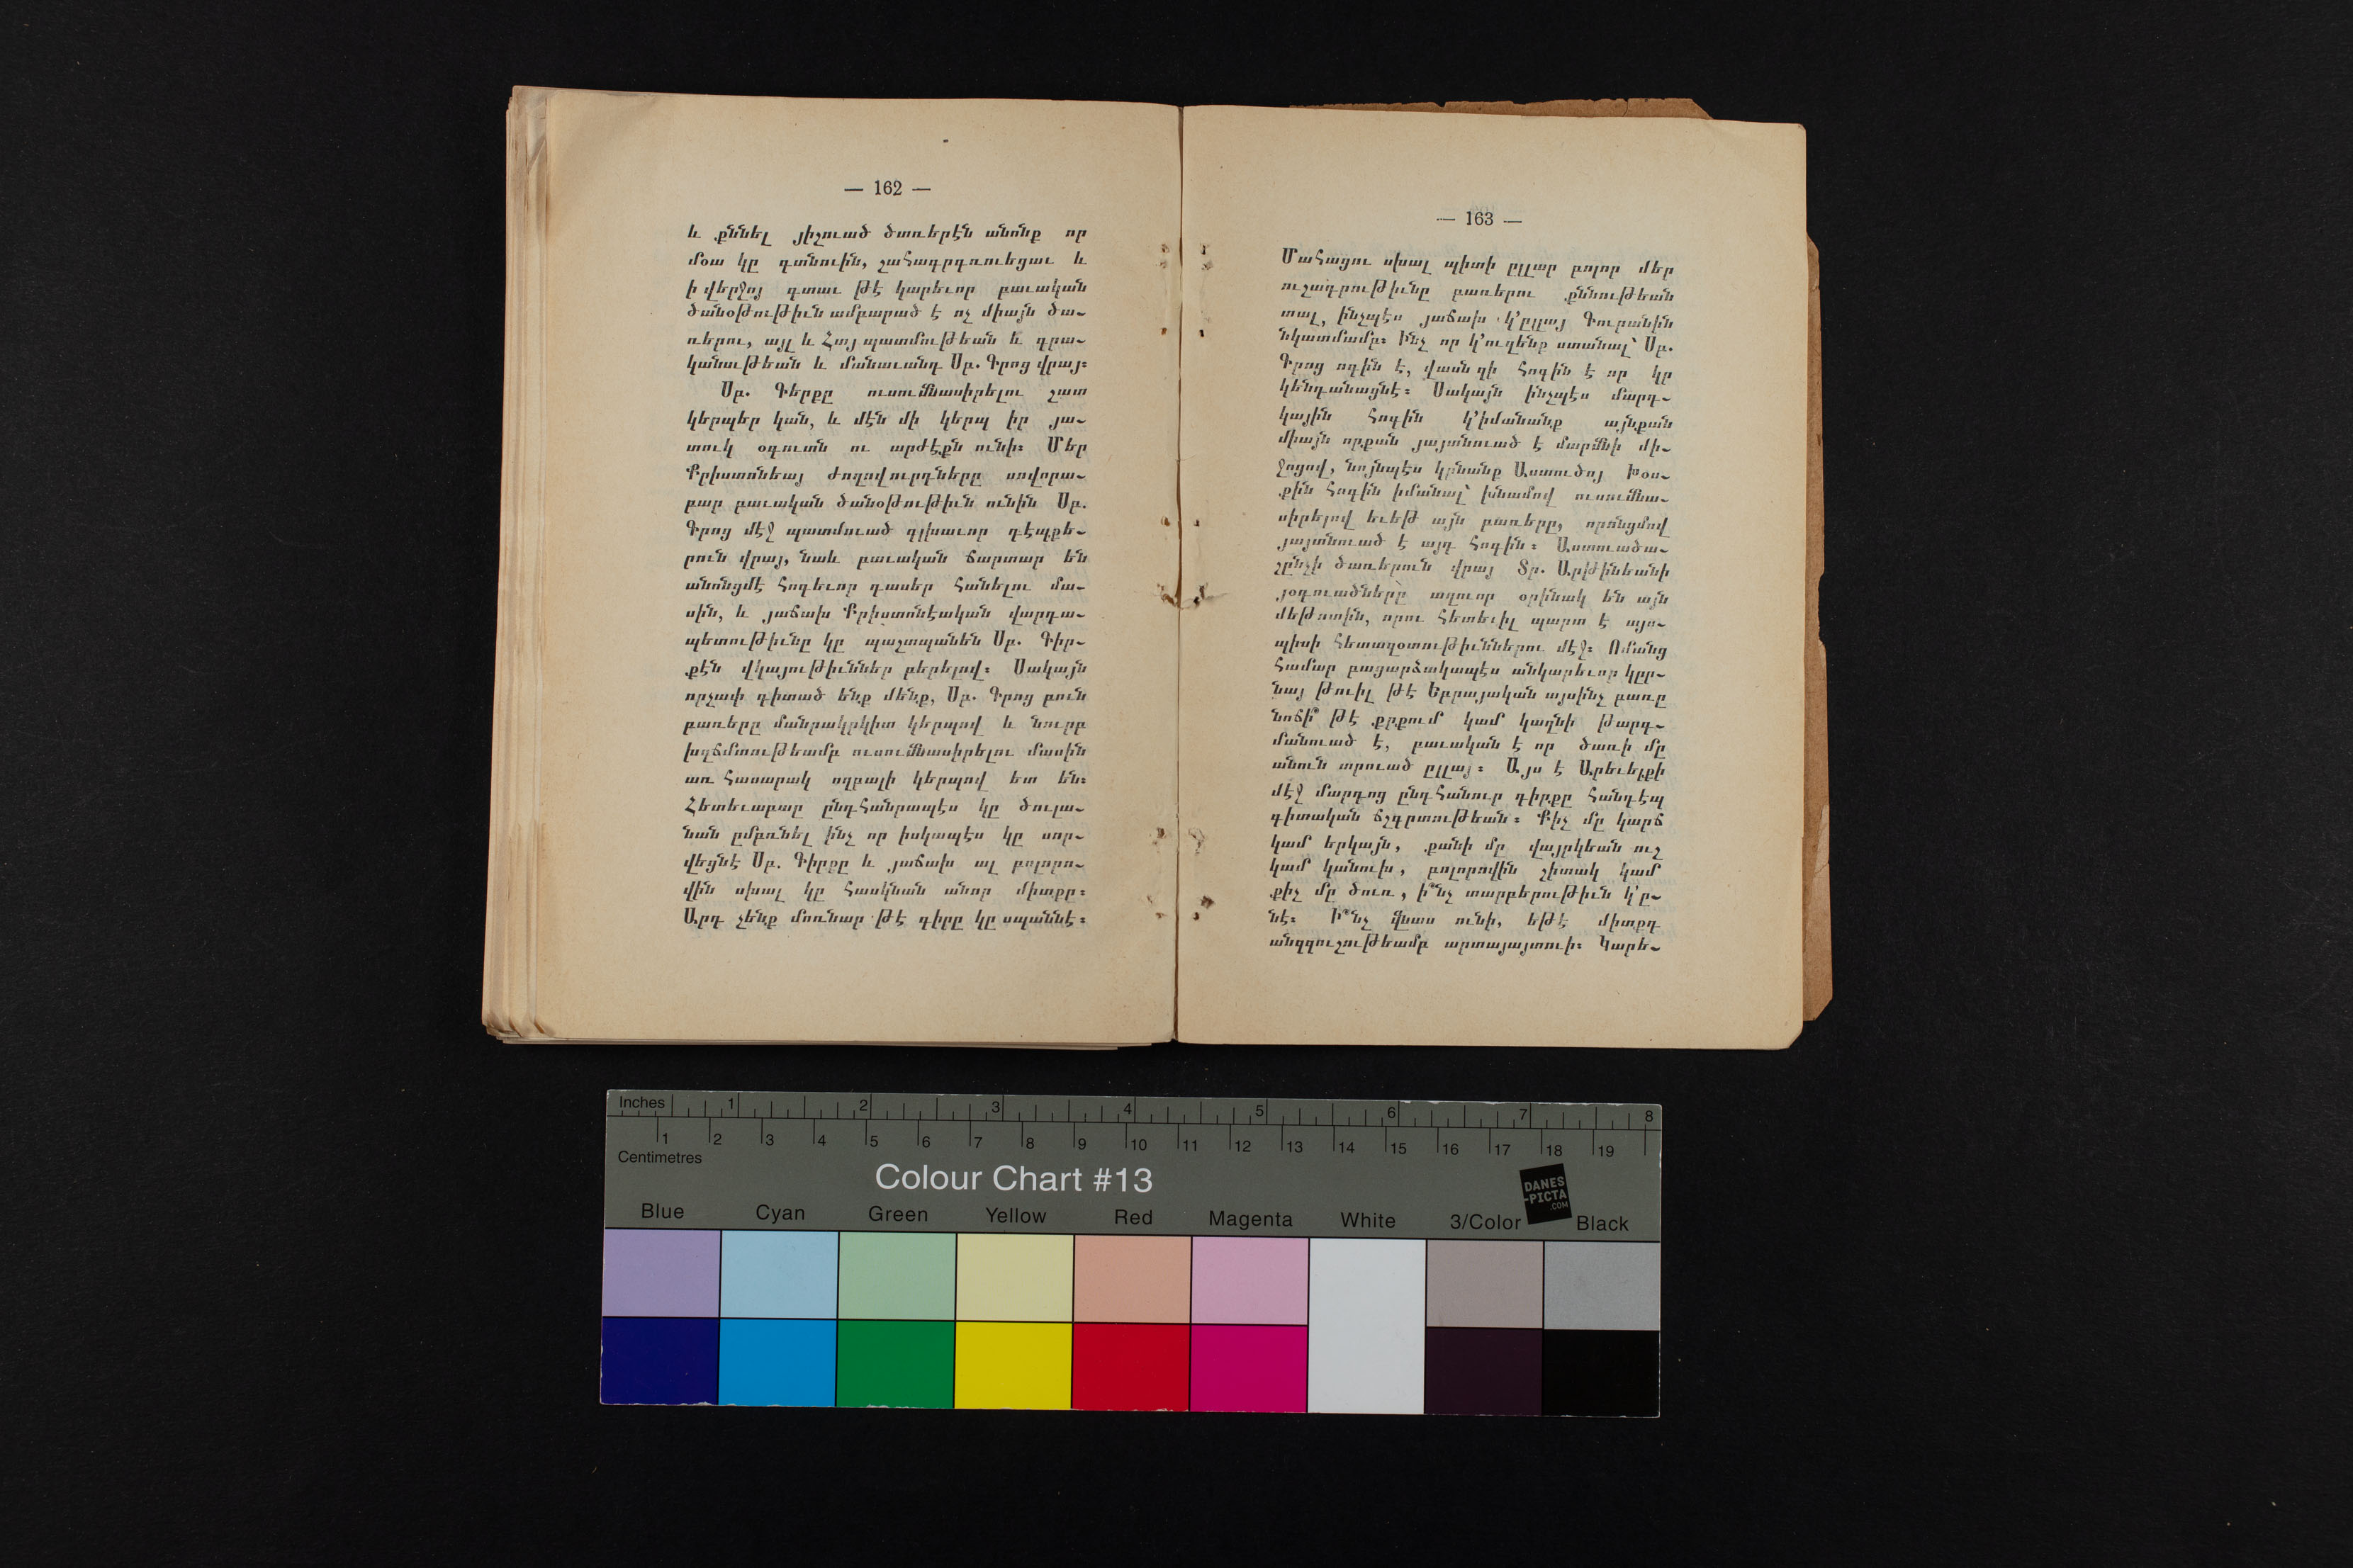 — 162 —
և քննել յիշուած ծառերէն անոնք որ
մօտ կը գտնուին, շահագրգռուեցաւ և
ի վերջոյ գտաւ թէ կարեւոր բաւական
ծանօթութիւն ամբարած է ոչ միայն ծա-
ռերու, այլ և Հայ պատմութեան և գրա-
կանութեան և մանաւանդ Սբ. Գրոց վրայ։
Սբ. Գերքը ուսումնասիրելու շատ
կերպեր կան, և մէն մի կերպ իր յա-
տուկ օգուտն ու արժէքն ունի։ Մեր
Քրիստոնեայ ժողովուրդները սովորա-
բար բաւական ծանօթութիւն ունին Սբ.
Գրոց մէջ պատմուած գլխաւոր դէպքե-
րուն վրայ, նաև բաւական ճարտար են
անոնցմէ հոգեւոր դասեր հանելու մա-
սին, և յաճախ Քրիստոնէական վարդա-
պետութիւնը կը պաշտպանեն Սբ. Գիր-
քէն վկայութիւններ բերելով։ Սակայն
որչափ դիտած ենք մենք, Սբ. Գրոց բուն
բառերը մանրակրկիտ կերպով և նուրբ
խղճմտութեամբ ուսումնասիրելու մասին
առ հասարակ ողբալի կերպով ետ են։
Հետեւաբար ընդհանրապէս կը ծուլա-
նան ըմբռնել ինչ որ իսկապէս կը սոր-
վեցնէ Սբ. Գիրքը և յաճախ ալ բոլորո-
վին սխալ կը հասկնան անոր միտքը։
Արդ չենք մոռնար թէ գիրը կը սպաննէ։
— 163 —
Մահացու սխալ պիտի ըլլար բոլոր մեր
ուշադրութիւնը բառերու քննութեան
տալ, ինչպէս յաճախ կ՚ըլլայ Գուրանին
նկատմամբ։ Ինչ որ կ՚ուզենք ստանալ՝ Սբ.
Գրոց ոգին է, վասն զի հոգին է որ կը
կենդանացնէ։ Սակայն ինչպէս մարդ-
կային հոգին կ՚իմանանք այնքան
միայն որքան յայտնուած է մարմնի մի-
ջոցով, նոյնպէս կրնանք Աստուծոյ Խօս-
քին հոգին իմանալ՝ խնամով ուսումնա-
սիրելով եւեթ այն բառերը, որոնցմով
յայտնուած է այդ հոգին։ Աստուածա-
շընչի ծառերուն վրայ Տր. Արթինեանի
յօդուածները աղուոր օրինակ են այն
մեթոտին, որու հետեւիլ պարտ է այս-
պիսի հետազօտութիւններու մէջ։ Ոմանց
համար բացարձակապէս անկարեւոր կըր-
նայ թուիլ թէ Եբրայական այսինչ բառը
նոճի՞ թէ քրքում կամ կաղնի թարգ-
մանուած է, բաւական է որ ծառի մը
անուն տրուած ըլլայ։ Այս է Արեւելքի
մէջ մարդոց ընդհանուր դիրքը հանդէպ
գիտական ճշգրտութեան։ Քիչ մը կարճ
կամ երկայն, քանի մը վայրկեան ուշ
կամ կանուխ, բոլորովին շիտակ կամ
քիչ մը ծուռ, ի՞նչ տարբերութիւն կ՚ը-
նէ։ Ի՞նչ վնաս ունի, եթէ միտքդ
անզգուշութեամբ արտայայտուի։ Կարե-
Inches 1 2 3 4 5 6 7 8
1 2 3 4 5 6 7 8 9 10 11 12 13 14 15 16 17 18 19
Centimetres
Colour Chart #13
DANES
-PICTA
.COM
Blue Cyan Green Yellow Red Magenta White 3/Color Black